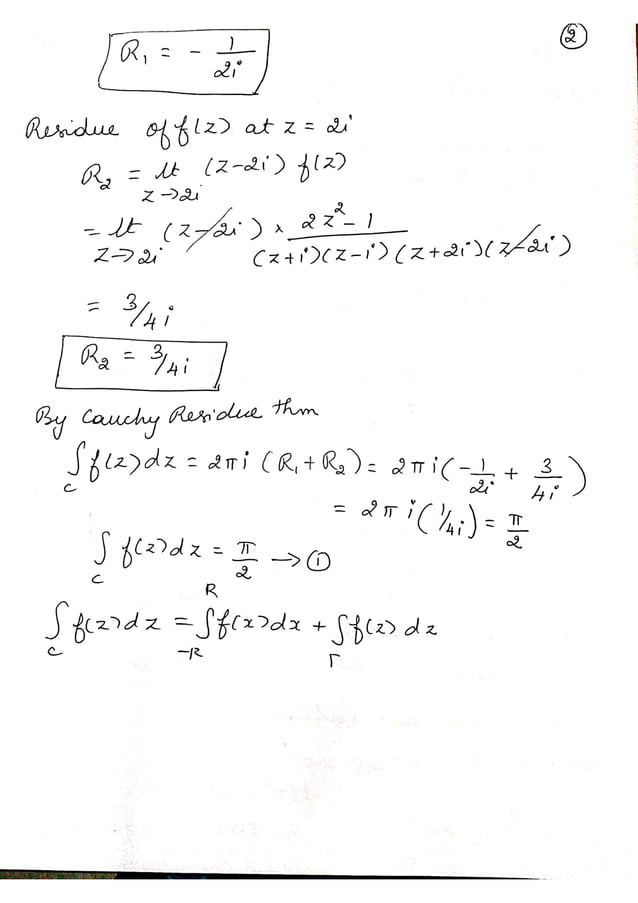 ②
R₁ = - 1/2i
Residue of f(z) at z = 2i
R₂ = lt (z-2i) f(z)
z→2i
= lt (z-2i) × 2z²-1 / (z+i)(z-i)(z+2i)(z-2i)
z→2i
= 3/4i
R₂ = 3/4i
By Cauchy Residue thm
∫f(z)dz = 2πi (R₁+R₂) = 2πi(-1/2i + 3/4i)
c
= 2πi(1/4i) = π/2
∫f(z)dz = π/2 → ①
c
R
∫f(z)dz = ∫f(x)dx + ∫f(z)dz
c -R Γ